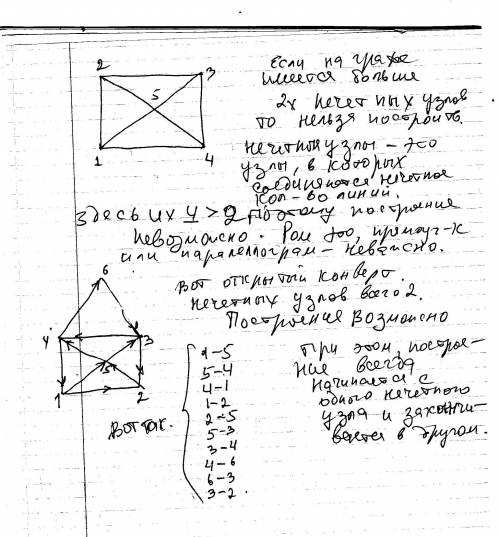 2 3
5
1 4
Если на графе
имеется больше
2х нечетных узлов
то нельзя построить.
Нечетные узлы – это
узлы, в которых
соединяются нечетное
кол-во линий.
Здесь их 4 > 2 Поэтому построение
невозможно. Ромб это, прямоуг-к
или параллелограм – неважно.
Вот открытый конверт.
Нечетных узлов всего 2.
Построение возможно
6
4 3
5
1 2
Вот так.
1–5
5–4
4–1
1–2
2–5
5–3
3–4
4–6
6–3
3–2.
При этом, построе-
ние всегда
начинается с
одного нечетного
узла и заканчи-
вается в другом.